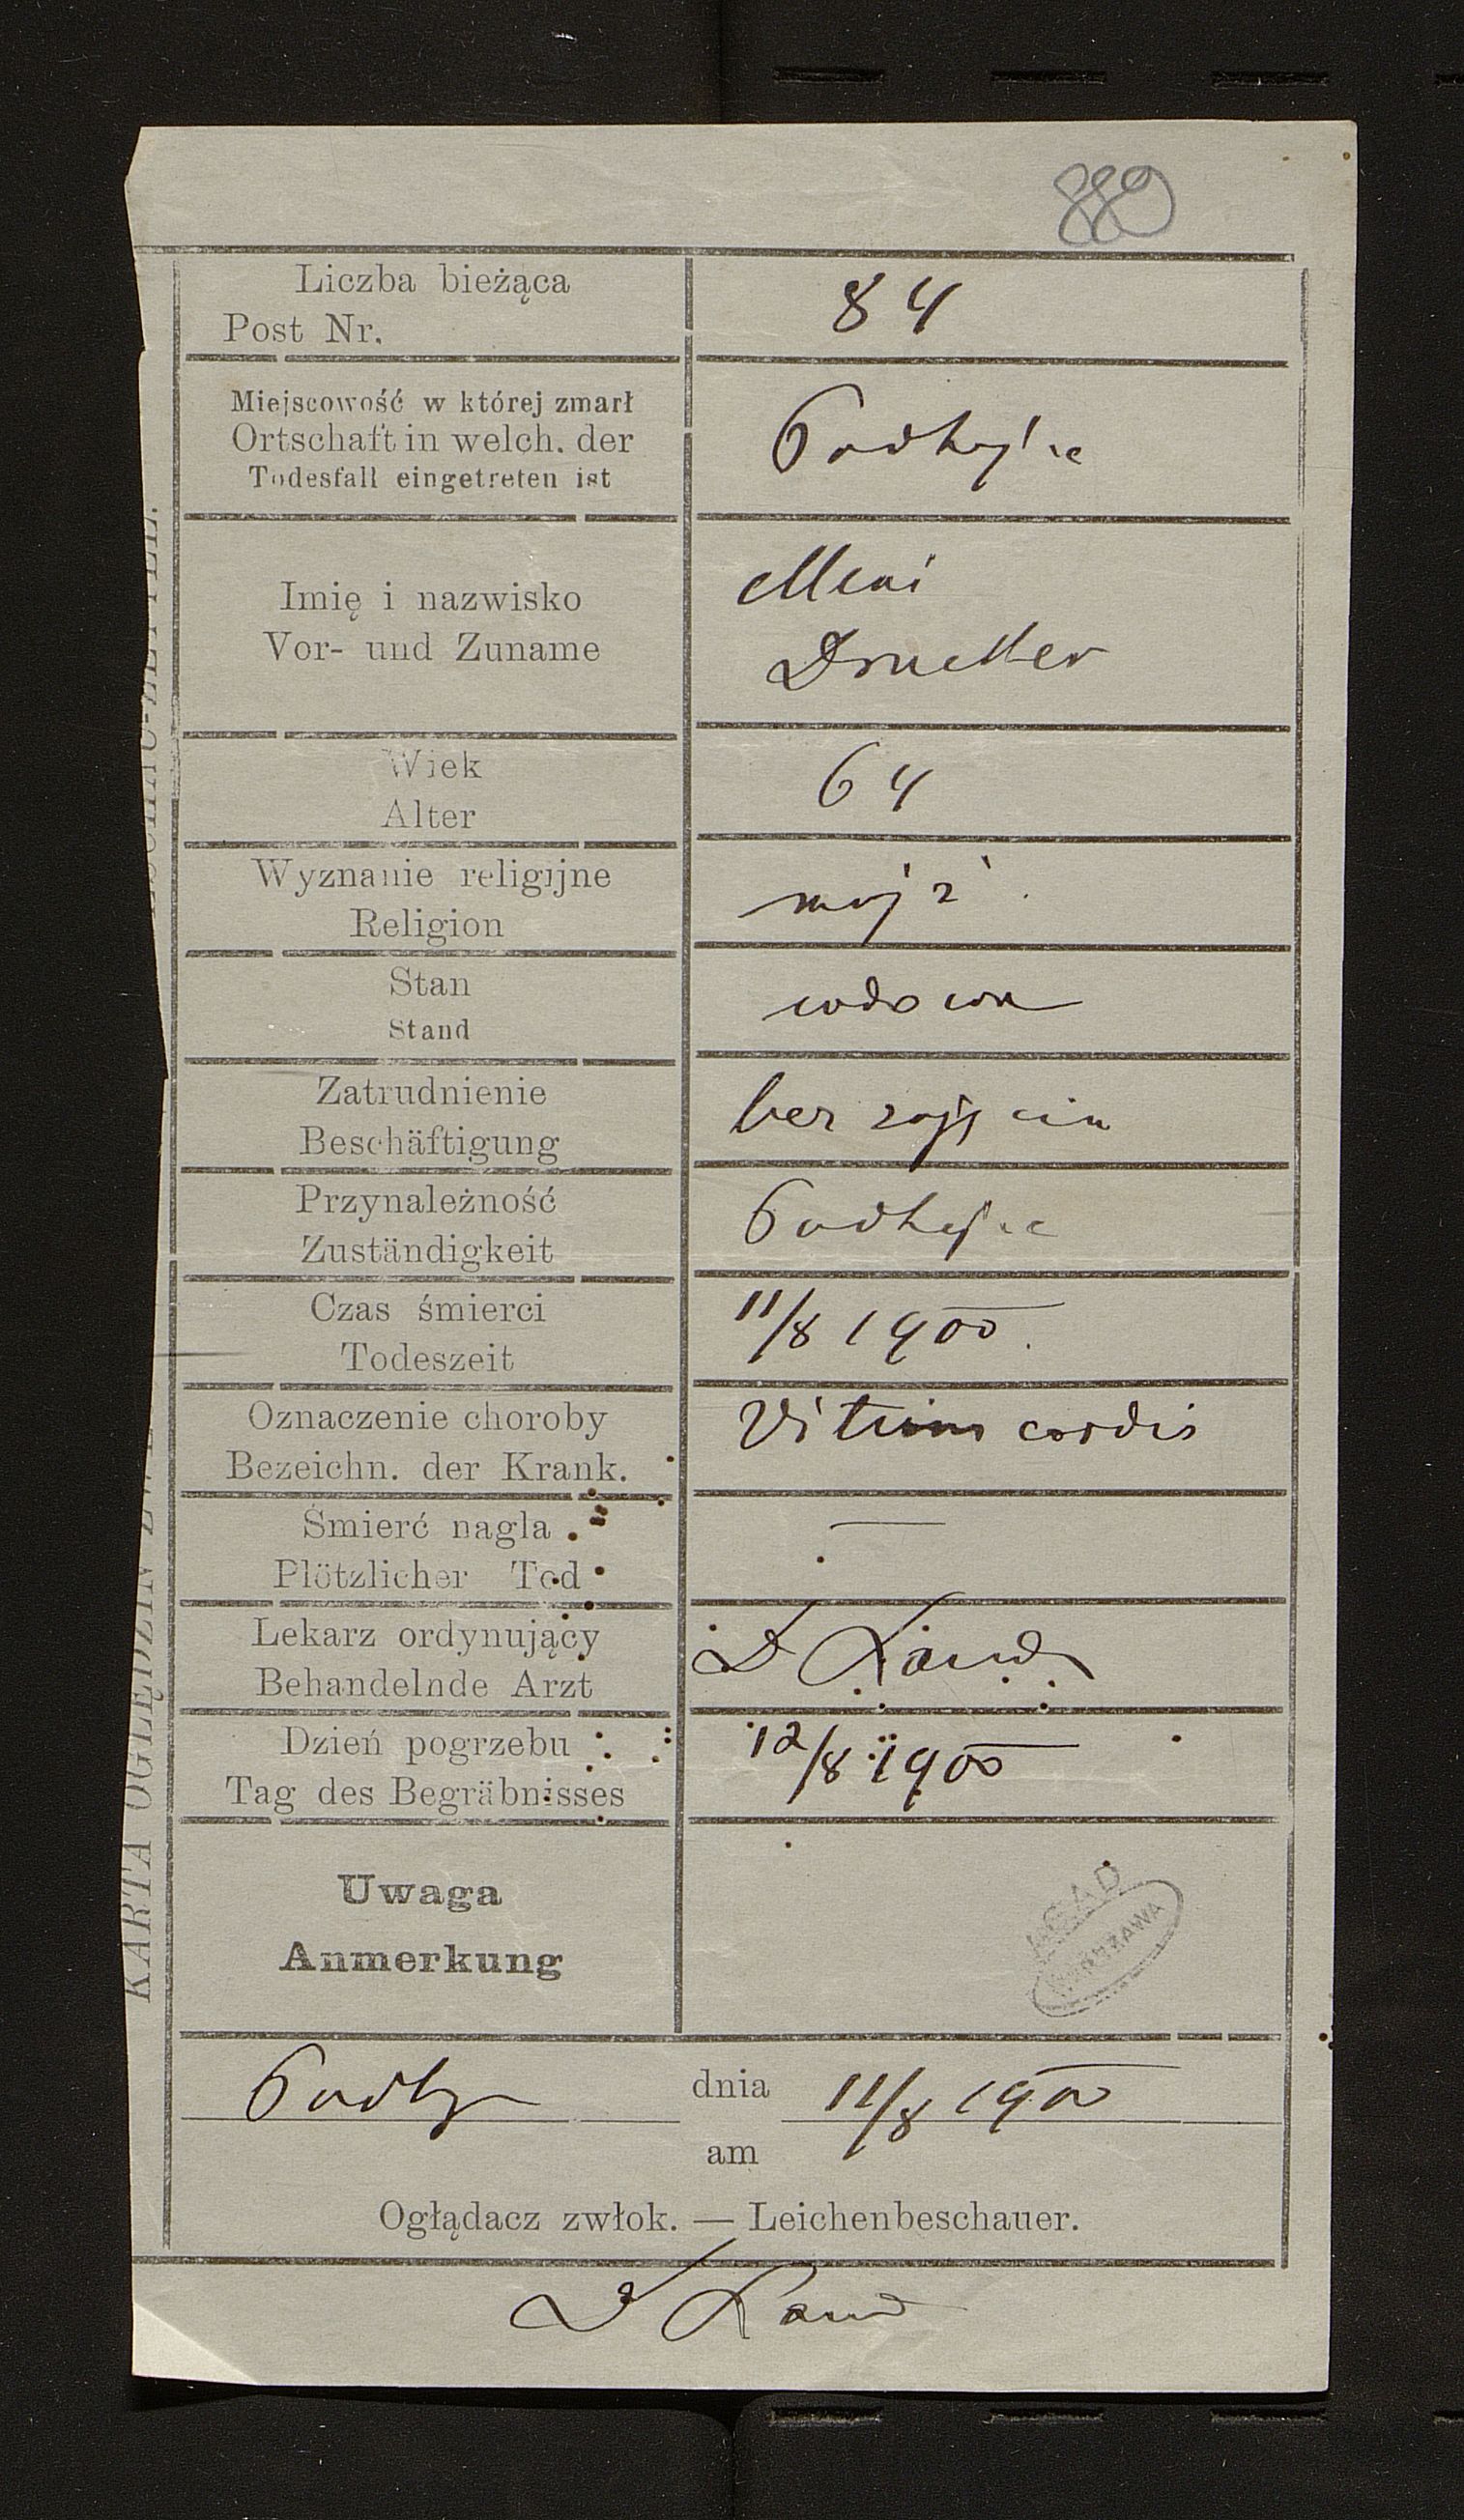 889
Liczba bieżąca
Post Nr.
84
Miejscowość w której zmarł
Ortschaft in welch. der
Todesfall eingetreten ist
Podhajce
Imię i nazwisko
Vor- und Zuname
Drucker
Wiek
Alter
64
Wyznanie religijne
Religion
mojż.
Stan
Stand
wdowa
Zatrudnienie
Beschäftigung
bez zajęcia
Przynależność
Zuständigkeit
Podhajce
Czas śmierci
Todeszeit
11/8 1900.
Oznaczenie choroby
Bezeichn. der Krank.
Vitium cordis
Śmierć nagla
Plötzlicher Tod
—
Lekarz ordynujący
Behandelnde Arzt
D Land
Dzień pogrzebu
Tag des Begräbnisses
12/8 1900
Uwaga
Anmerkung
AGAD
WARSZAWA
dnia 11/8 1900
am
Oglądacz zwłok. — Leichenbeschauer.
D Land
KARTA OGLĘDZIN